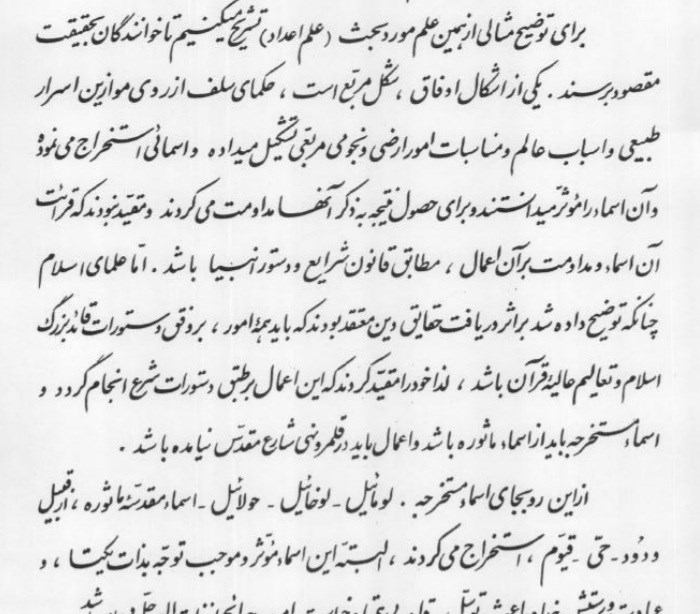 برای توضیح مثالی از همین علم مورد بحث (علم اعداد) تشریح میکنیم تا خوانندگان بحقیقت
مقصود برسند . یکی از اشکال اوفاق ، شکل مربّع است ، حکمای سلف از روی موازین اسرار
طبیعی و اسباب عالم و مناسبات امور ارضی و نجومی مربّعی تشکیل میداده و اسمائی استخراج می نموده
و آن اسماء را مؤثّر میدانستند و برای حصول نتیجه به ذکر آنها مداومت می کردند و مقیّد نبودند که قرائت
آن اسماء و مداومت بر آن اعمال ، مطابق قانون شرایع و دستور انبیا باشد . امّا علمای اسلام
چنانکه توضیح داده شد بر اثر دریافت حقایق دین معتقد بودند که باید همهٔ امور ، بر وفق دستورات قائد بزرگ
اسلام و تعالیم عالیهٔ قرآن باشد ، لذا خود را مقیّد کردند که این اعمال بر طبق دستورات شرع انجام گردد و
اسماء مستخرجه باید از اسماء مأثوره باشد و اعمال باید در قلمرو نهی شارع مقدّس نیامده باشد .
از این رو بجای اسماء مستخرجه . لومائیل - لوخائیل - حولائیل - اسماء مقدسهٔ مأثوره ، از قبیل
ودود - حیّ - قیّوم ، استخراج می کردند ، البتّه این اسماء مؤثر و موجب توجّه بذات یکتا ، و